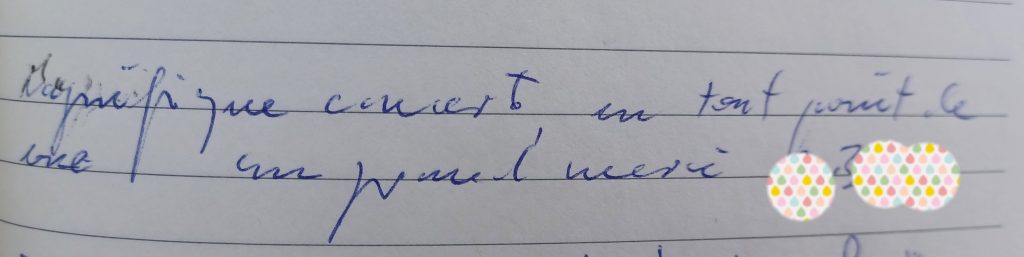 Magnifique concert en tout point de
vue un grand merci